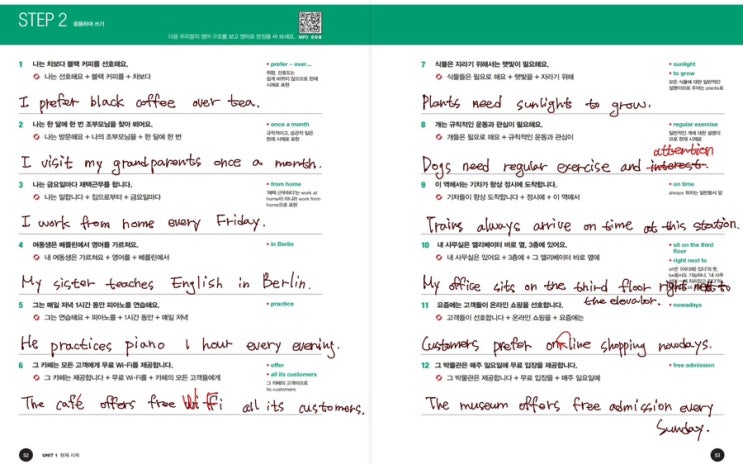 STEP 2 응용하여 쓰기
다음 우리말의 영어 구조를 보고 영어로 문장을 써 보세요. MP3
1 나는 차보다 블랙 커피를 선호해요.
나는 선호해요 + 블랙 커피를 + 차보다
• prefer ~ over...
취향, 선호도는
쉽게 바뀌지 않으므로 현재
시제로 표현
I prefer black coffee over tea.
2 나는 한 달에 한 번 조부모님을 찾아 봬어요.
나는 방문해요 + 나의 조부모님을 + 한 달에 한 번
• once a month
규칙적이고, 습관적 일은
현재 시제로 표현
I visit my grandparents once a month.
3 나는 금요일마다 재택근무를 합니다.
나는 일합니다 + 집으로부터 + 금요일마다
• from home
'재택 근무하다'는 work at
home이 아니라 work from
home으로 표현
I work from home every Friday.
4 여동생은 베를린에서 영어를 가르쳐요.
내 여동생은 가르쳐요 + 영어를 + 베를린에서
• in Berlin
My sister teaches English in Berlin.
5 그는 매일 저녁 1시간 동안 피아노를 연습해요.
그는 연습해요 + 피아노를 + 1시간 동안 + 매일 저녁
• practice
He practices piano 1 hour every evening.
6 그 카페는 모든 고객에게 무료 Wi-Fi를 제공합니다.
그 카페는 제공합니다 + 무료 Wi-Fi를 + 카페의 모든 고객들에게
• offer
• all its customers
그 카페의 고객이므로
its customers
The café offers free Wi-Fi all its customers.
52 UNIT 1 현재 시제
7 식물은 자라기 위해서는 햇빛이 필요해요.
식물들은 필요로 해요 + 햇빛을 + 자라기 위해
• sunlight
• to grow
모든 식물에 대한 일반적인
설명이므로 주어는 plants로
Plants need sunlight to grow.
8 개는 규칙적인 운동과 관심이 필요해요.
개들은 필요로 해요 + 규칙적인 운동과 관심이
• regular exercise
일반적인 개에 대한 설명이
므로 현재 시제로
attention
Dogs need regular exercise and interest.
9 이 역에서는 기차가 항상 정시에 도착합니다.
기차들이 항상 도착합니다 + 정시에 + 이 역에서
• on time
always 위치는 일반동사 앞
Trains always arrive on time at this station.
10 내 사무실은 엘리베이터 바로 옆, 3층에 있어요.
내 사무실은 있어요 + 3층에 + 그 엘리베이터 바로 옆에
• sit on the third
floor
• right next to
My office sits on the third floor right next to
the elevator.
11 요즘에는 고객들이 온라인 쇼핑을 선호합니다.
고객들이 선호합니다 + 온라인 쇼핑을 + 요즘에는
• nowadays
Customers prefer online shopping nowdays.
12 그 박물관은 매주 일요일에 무료 입장을 제공합니다.
그 박물관은 제공합니다 + 무료 입장을 + 매주 일요일에
• free admission
The museum offers free admission every
Sunday.
53